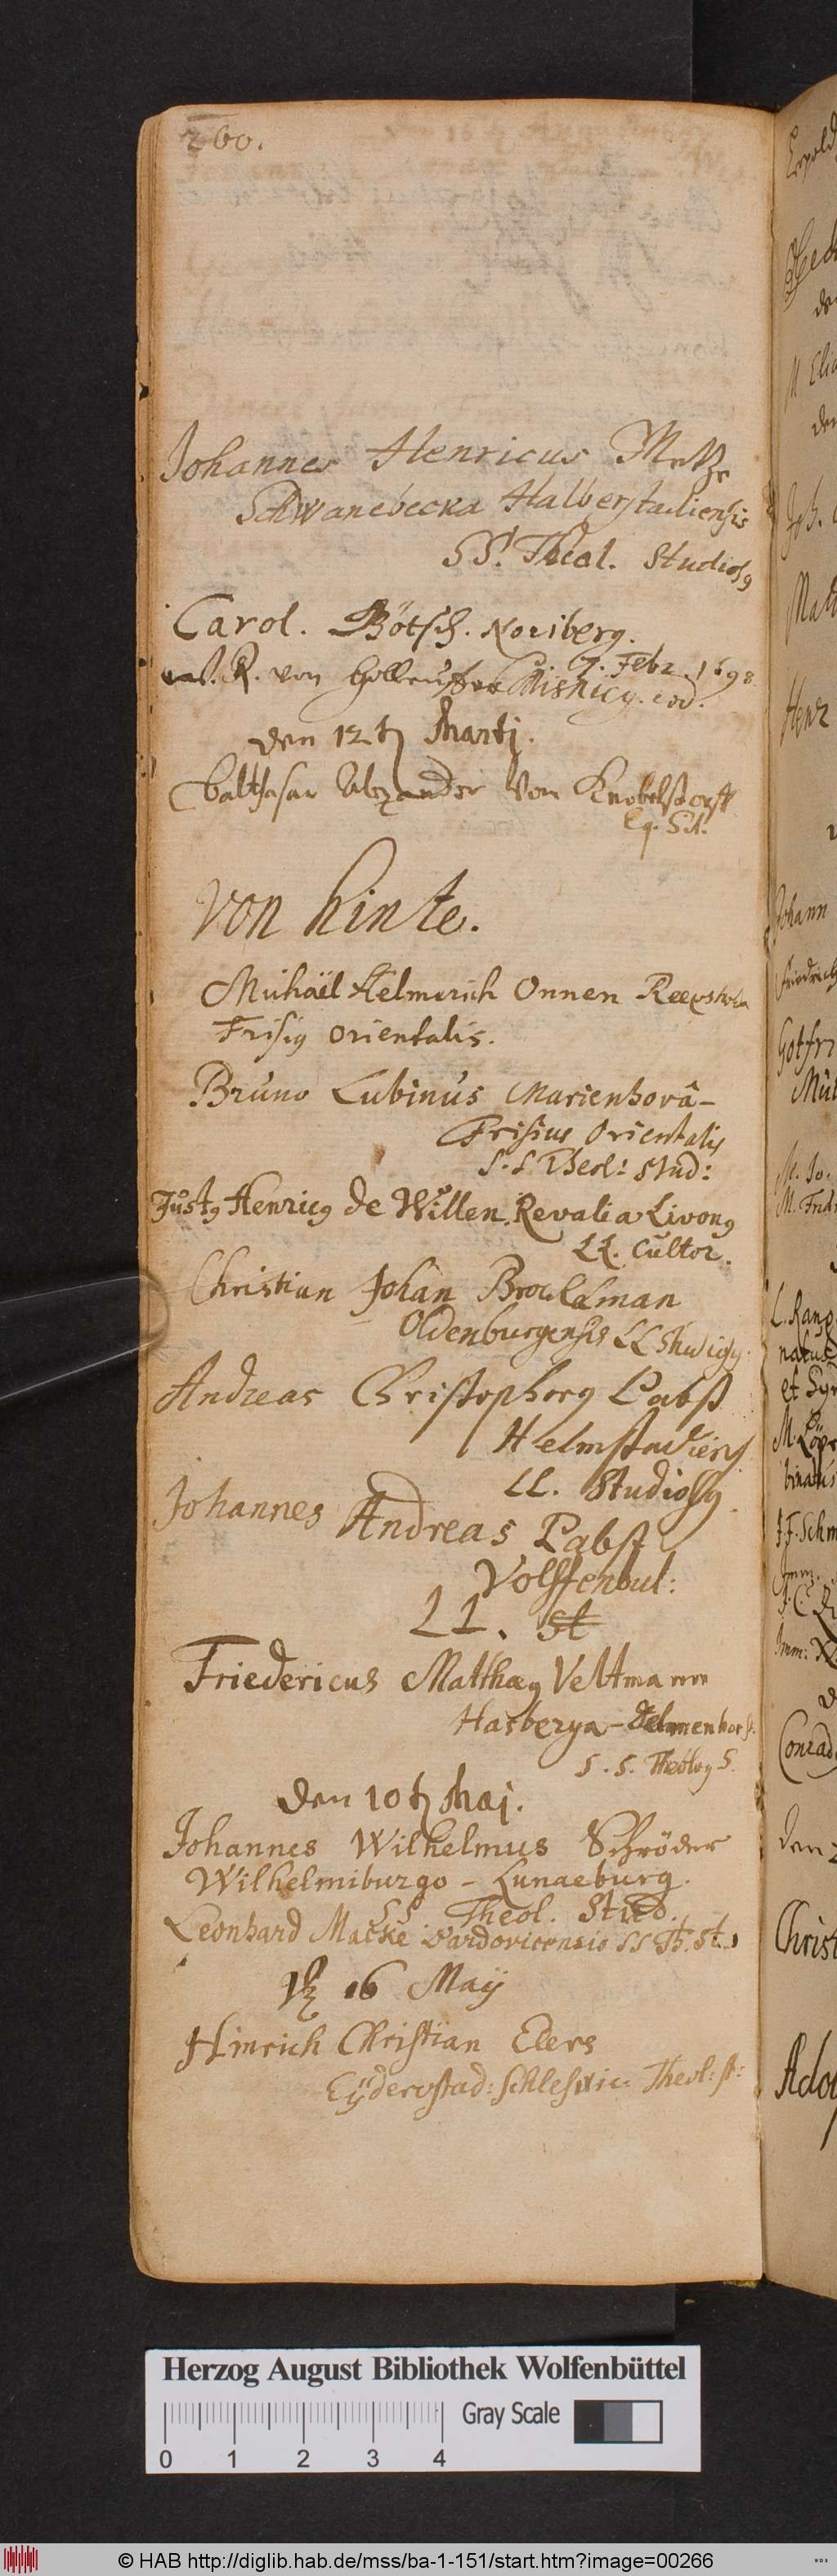 260.
Johannes Henricus Metze
Schwanebecka Halberstadiensis
SS. Theol. Studios9
Carol. Bötsch. Noriberg.
7. Febr. 1698
R. von Misnic9. eod.
den 12t Martij.
Balthasar Alexander Von Knobelstorff
Eq. Sil.
Von Hinte.
Michaël Helmerich Onnen Reepsholta
Frisi9 Orientalis.
Bruno Lubinus Marienhovâ-
Frisius Orientalis
S. S. Theol: Stud:
Just9 Henric9 de Willen. Revalia Livon9
LL. Cultor.
Christian Johan Brockelman
Oldenburgensis LL Studios9
Andreas Christophor9 Pabst
Helmstadiens
LL. Studios9
Johannes Andreas Pabst
Wolffenbul:
LL. St
Friedericus Matthae9 Veltmann
Hasberga-Delmenhorst.
S. S. Theolog S.
den 10t Maj.
Johannes Wilhelmus Schröder
Wilhelmiburgo-Lunaeburg.
SS Theol. Stud.
Leonhard Macke Bardovicensis SS Th. St.
16 Maÿ
Hinrich Christian Elers
Eÿderostad: Schleswic. Theol: st:
Herzog August Bibliothek Wolfenbüttel
Gray Scale
0 1 2 3 4
© HAB http://diglib.hab.de/mss/ba-1-151/start.htm?image=00266